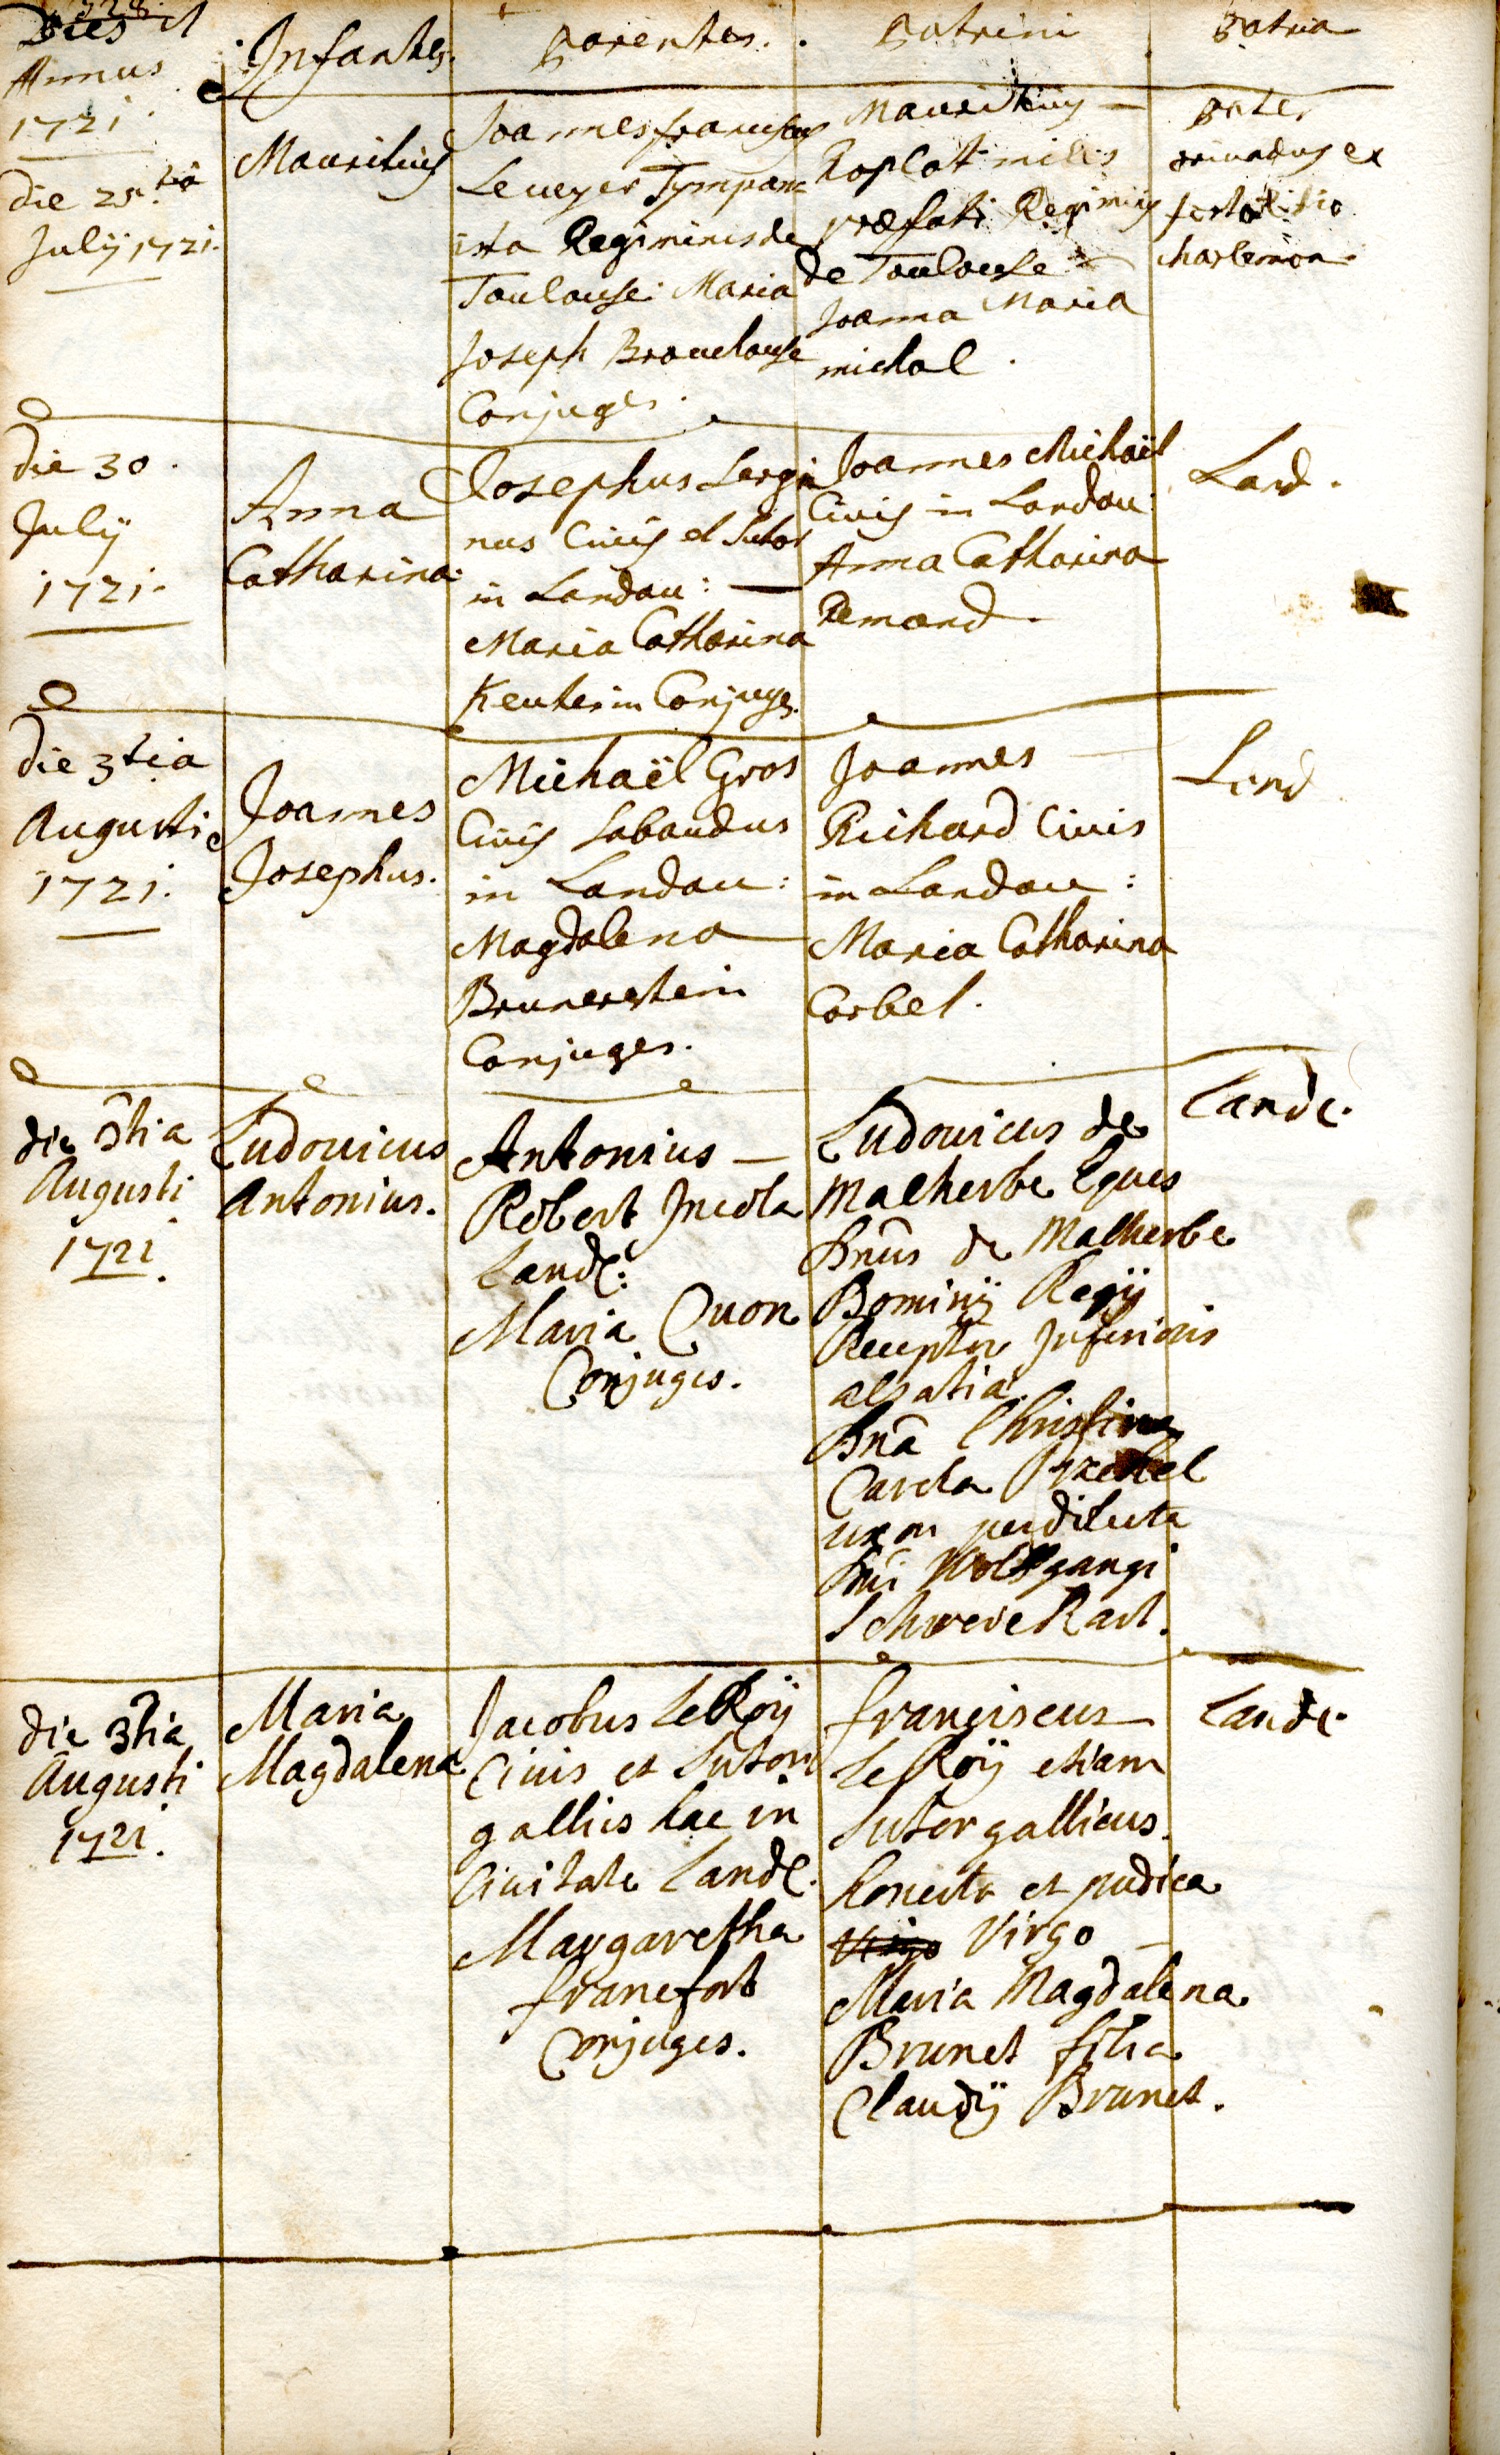 Dies et
Annus
1721.
Infantes.
Parentes.
Patrini
Patria
die 25.tâ
Julÿ 1721.
Mauritius
Joannes franciscus
Leveyer Tympan
ista Regiminis de
Toulouse: Maria
Joseph
Conjuges.
Mauritius —
Koplot miles
præfati Regiminis
de Toulouse
Joanna Maria
michal.
pater
oriundus ex
fortalitio
charlemon.
die 30.
Julÿ
1721.
Anna
Catharina.
Josephus Lergi
nus Civis et Sutor
in Landau: —
Maria Catharina
Keuterin Conjuges.
Joannes Michaël
Civis in Landau:
Anna Catharina
Remond.
Land.
die 3tia
Augusti
1721.
Joannes
Josephus.
Michaël Gros
Civis Sabaudus
in Landau:
Magdalena
Brunerstein
Conjuges.
Joannes —
Richard Civis
in Landau:
Maria Catharina
Corbel.
Land
die 3tia
Augusti
1721.
Ludovicus
Antonius.
Antonius —
Robert Incola
Land:
Maria Cuon
Conjuges.
Ludovicus de
Malherbe Eques
Dnûs de Malherbe
Dominÿ Regÿ
Receptor Inferioris
alsatiæ
Dnâ Christina
Carola
uxor perdilecta
Dnî Wolfgangi
SchweieKart.
Lande.
die 3tia
Augusti
1721.
Maria
Magdalena
Jacobus Le Roÿ
Civis et Sutor
gallicus hac in
Civitate Land.
Margaretha
francfort
Conjuges.
franciscus
Le Roÿ etiam
Sutor gallicus.
honesta et pudica
Virgo Virgo —
Maria Magdalena
Brunet filia
Claudÿ Brunet.
Lande.